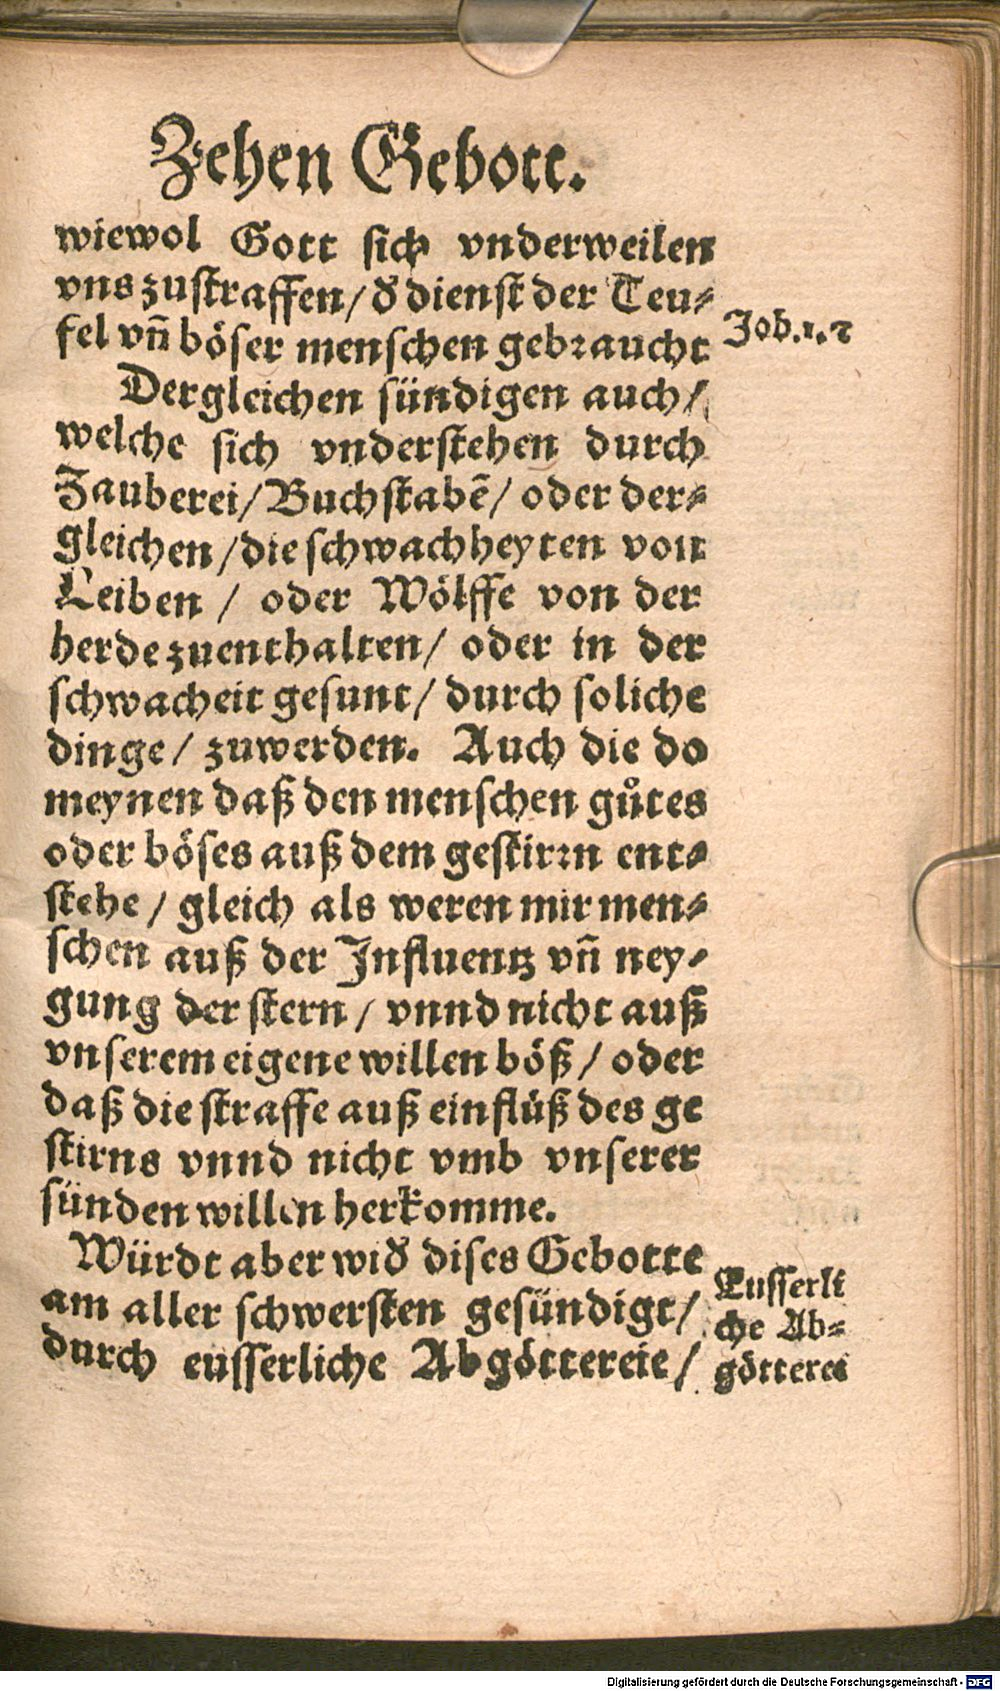 Zehen Gebott.
wiewol Gott sich vnderweilen
vns zustraffen / d̕ dienst der Teu⸗
fel vñ böser menschen gebraucht
Job.1.2
Dergleichen sündigen auch /
welche sich vnderstehen durch
Zauberei / Buchstabẽ / oder der⸗
gleichen / die schwachheyten von
Leiben / oder Wölffe von der
herde zuenthalten / oder in der
schwacheit gesunt / durch soliche
dinge / zuwerden. Auch die do
meynen daß den menschen gůtes
oder böses auß dem gestirrn ent⸗
stehe / gleich als weren mir men⸗
schen auß der Influentz vñ ney⸗
gung der stern / vnnd nicht auß
vnserem eigene willen böß / oder
daß die straffe auß einflüß des ge
stirns vnnd nicht vmb vnserer
sünden willen herkomme.
Würdt aber wid̕ dises Gebotte
am aller schwersten gesündigt /
durch eusserliche Abgöttereie /
Eusserli
che Ab⸗
götterei
Digitalisierung gefördert durch die Deutsche Forschungsgemeinschaft - DFG